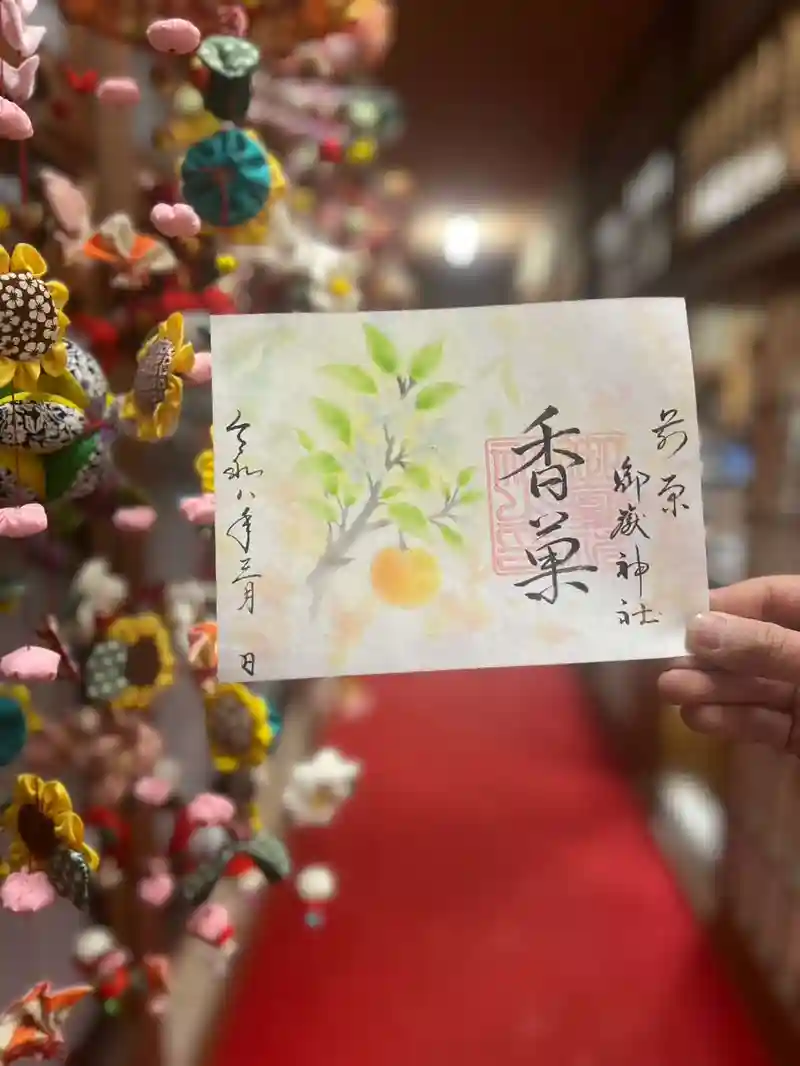 前原
御嶽神社
香菓
令和八年三月 日